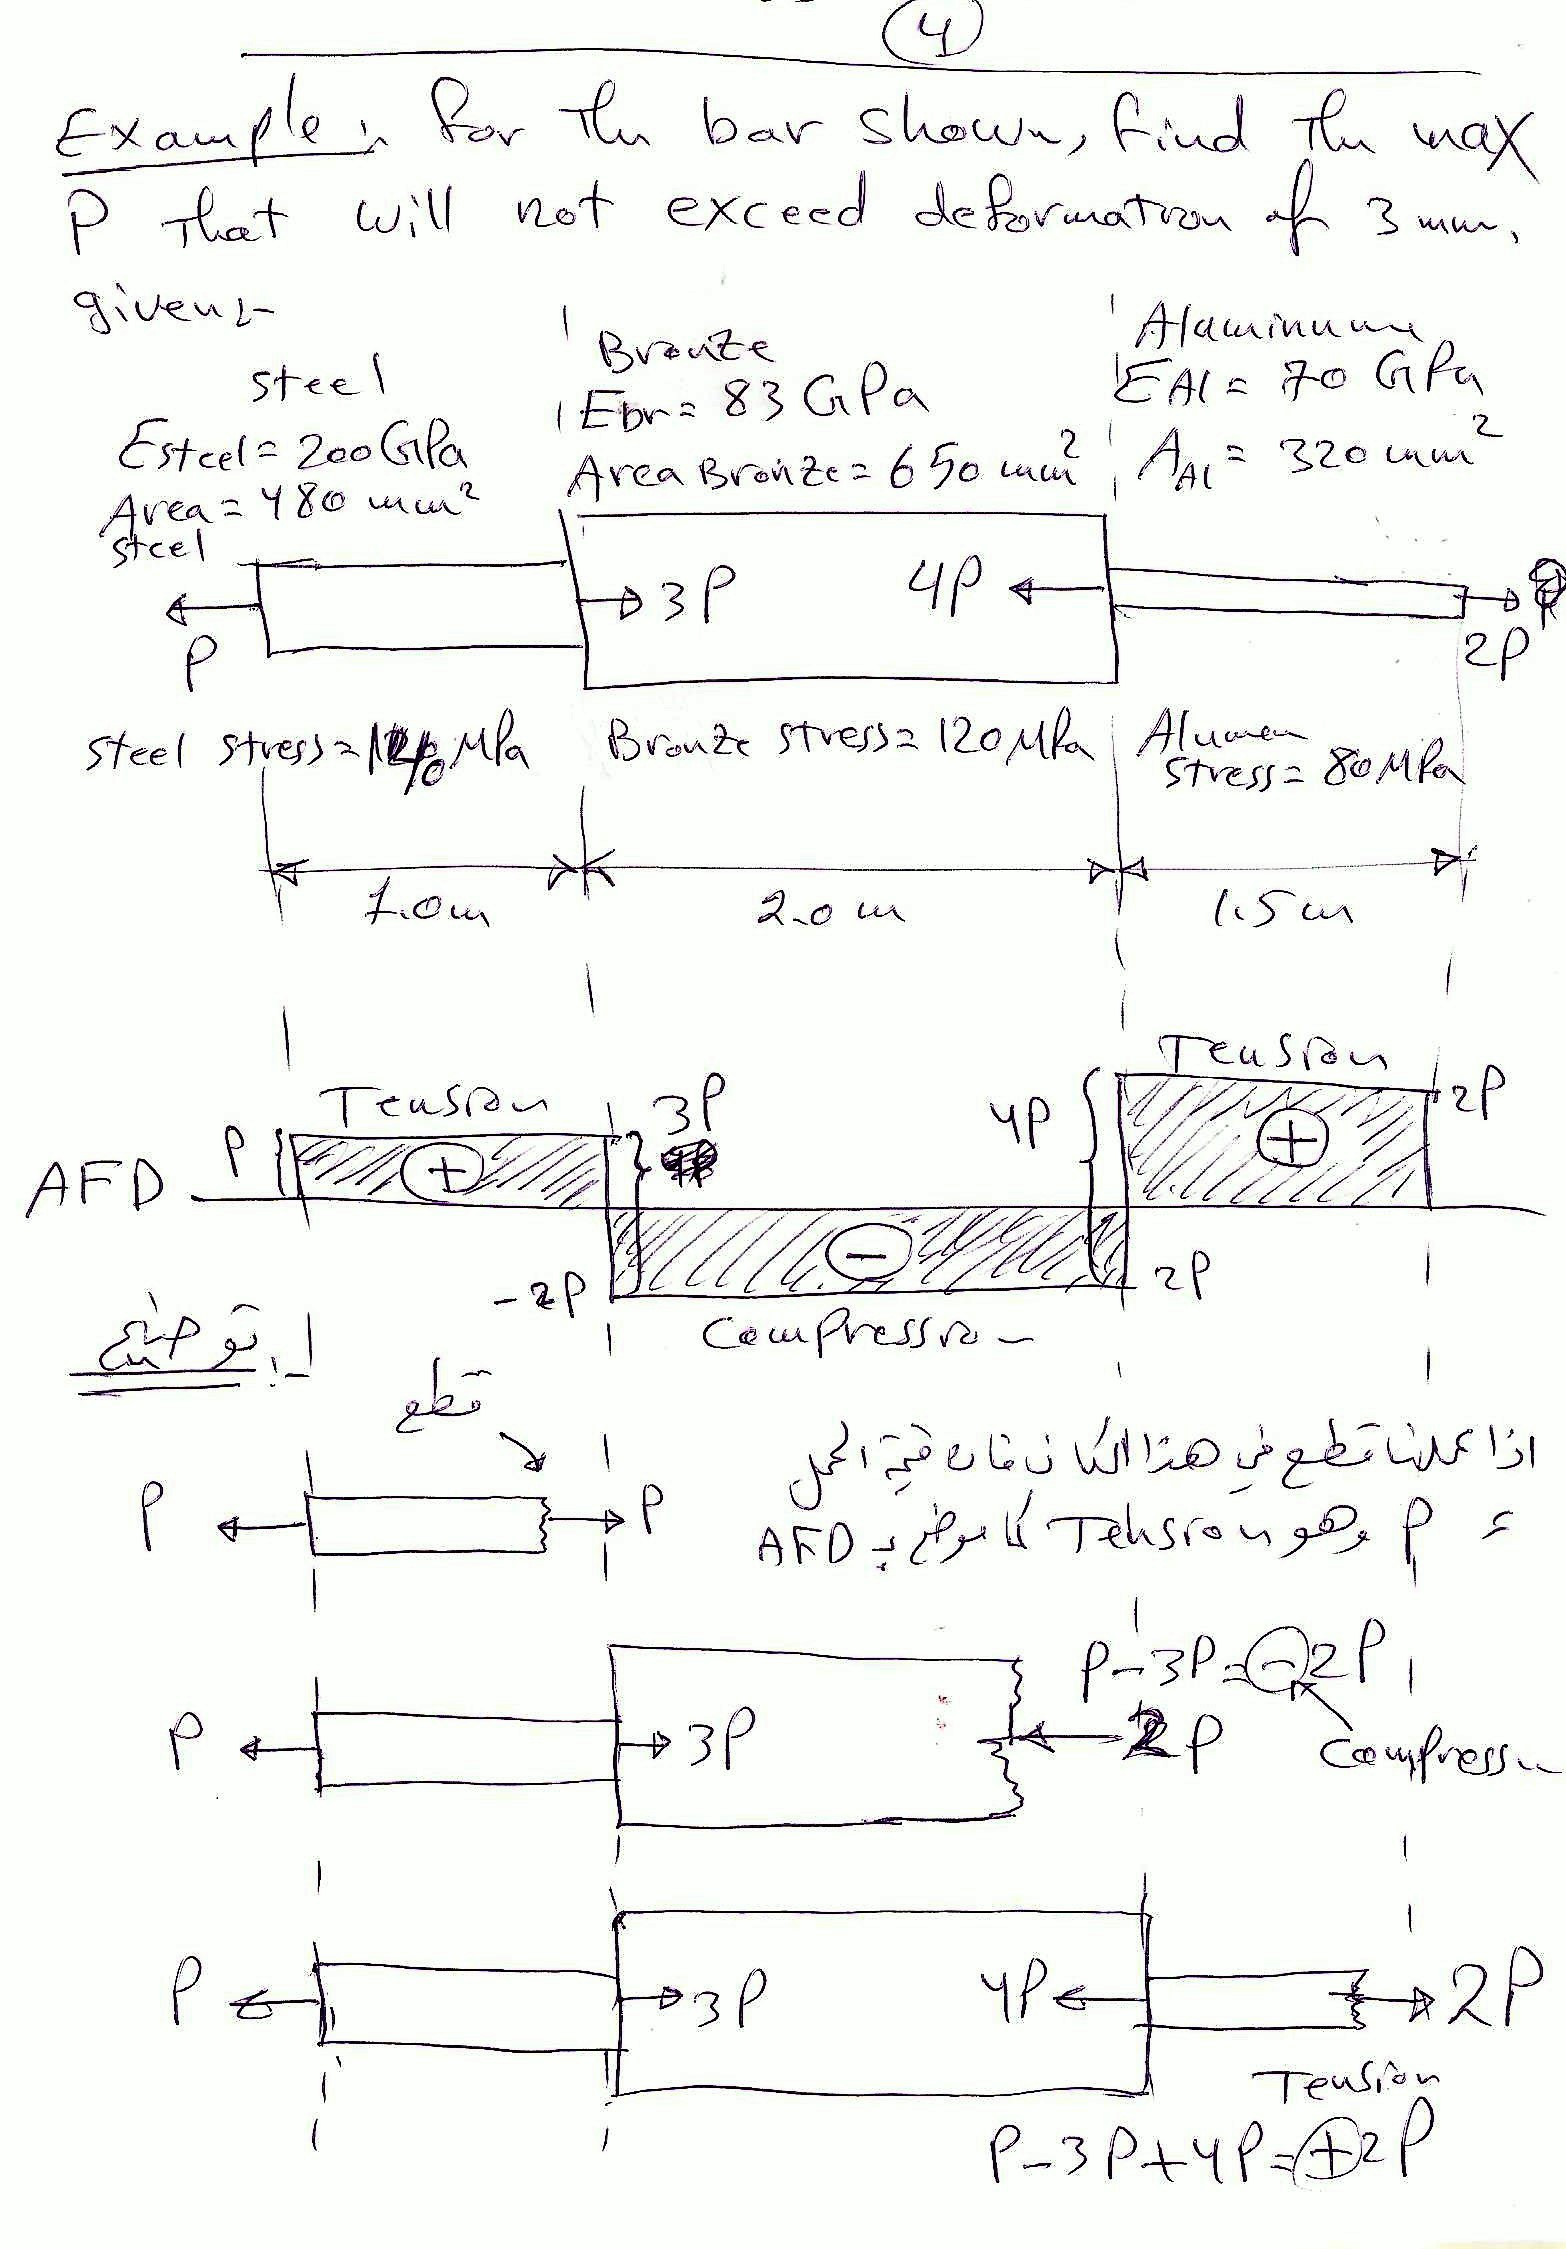 4
Example: for the bar shown, find the max
P that will not exceed deformation of 3 mm,
given:-
steel
Esteel = 200 GPa
Area = 480 mm²
steel
Bronze
Ebr = 83 GPa
Area Bronze = 650 mm²
Alaminume
EAl = 70 GPa
AAl = 320 mm²
P
3P
4P
2P
steel stress = 140 MPa
Bronze stress = 120 MPa
Alumen
stress = 80 MPa
1.0m
2.0 m
1.5 m
AFD
P
Tension
+
3P
-2P
-
Compression
4P
Tension
+
2P
2P
توضيح :-
قطع
P
P
اذا عملنا قطع في هذا المكان فان قيمة الحمل
= P وهو Tension كما موضح بـ AFD
P
3P
P-3P=-2P
2P
Compress
P
3P
4P
2P
Tension
P-3P+4P=+2P